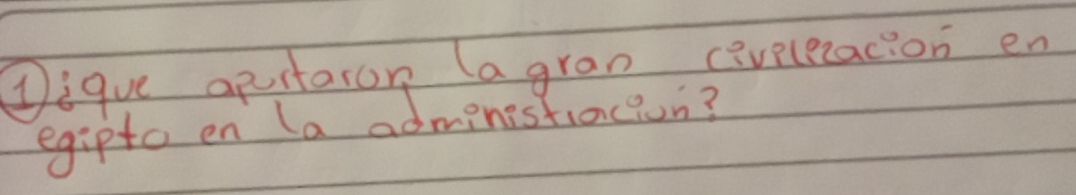 ① ¿que aportaron la gran civilización en
egipto en la administración?